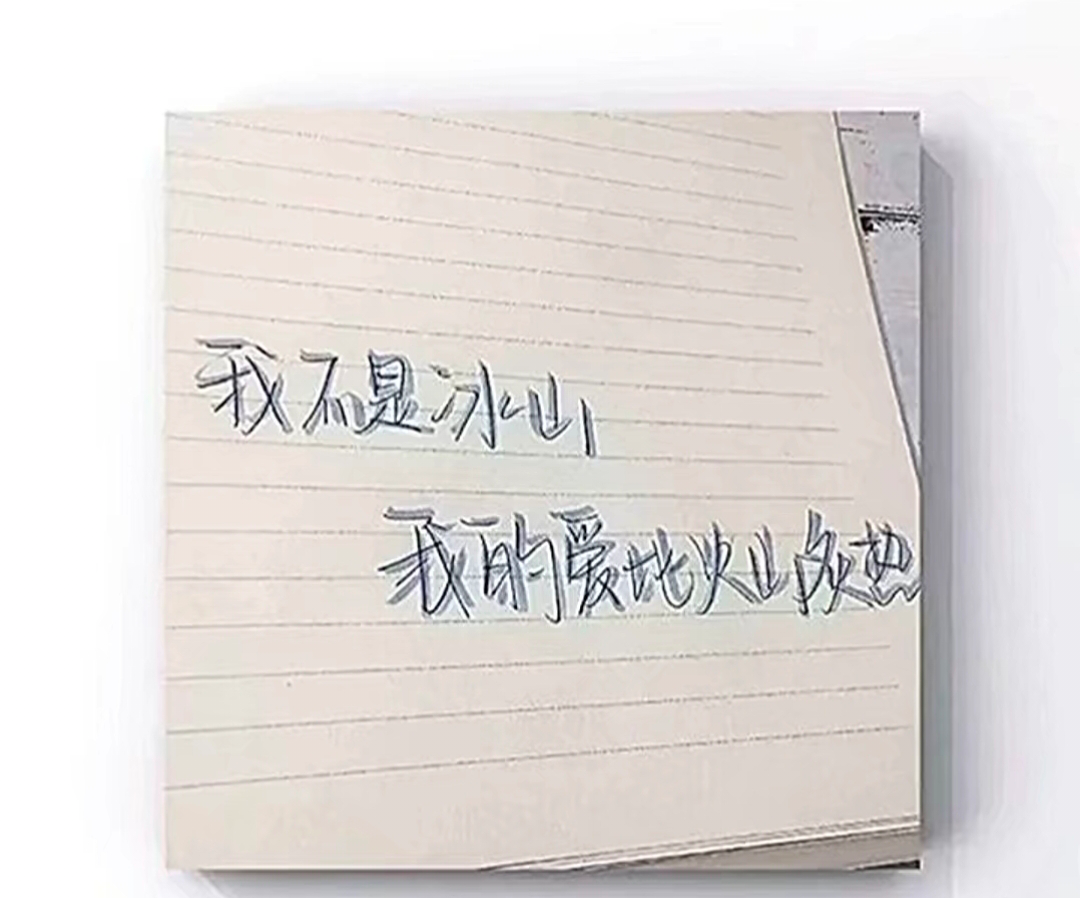 我不是冰山
我的爱比火山炙热